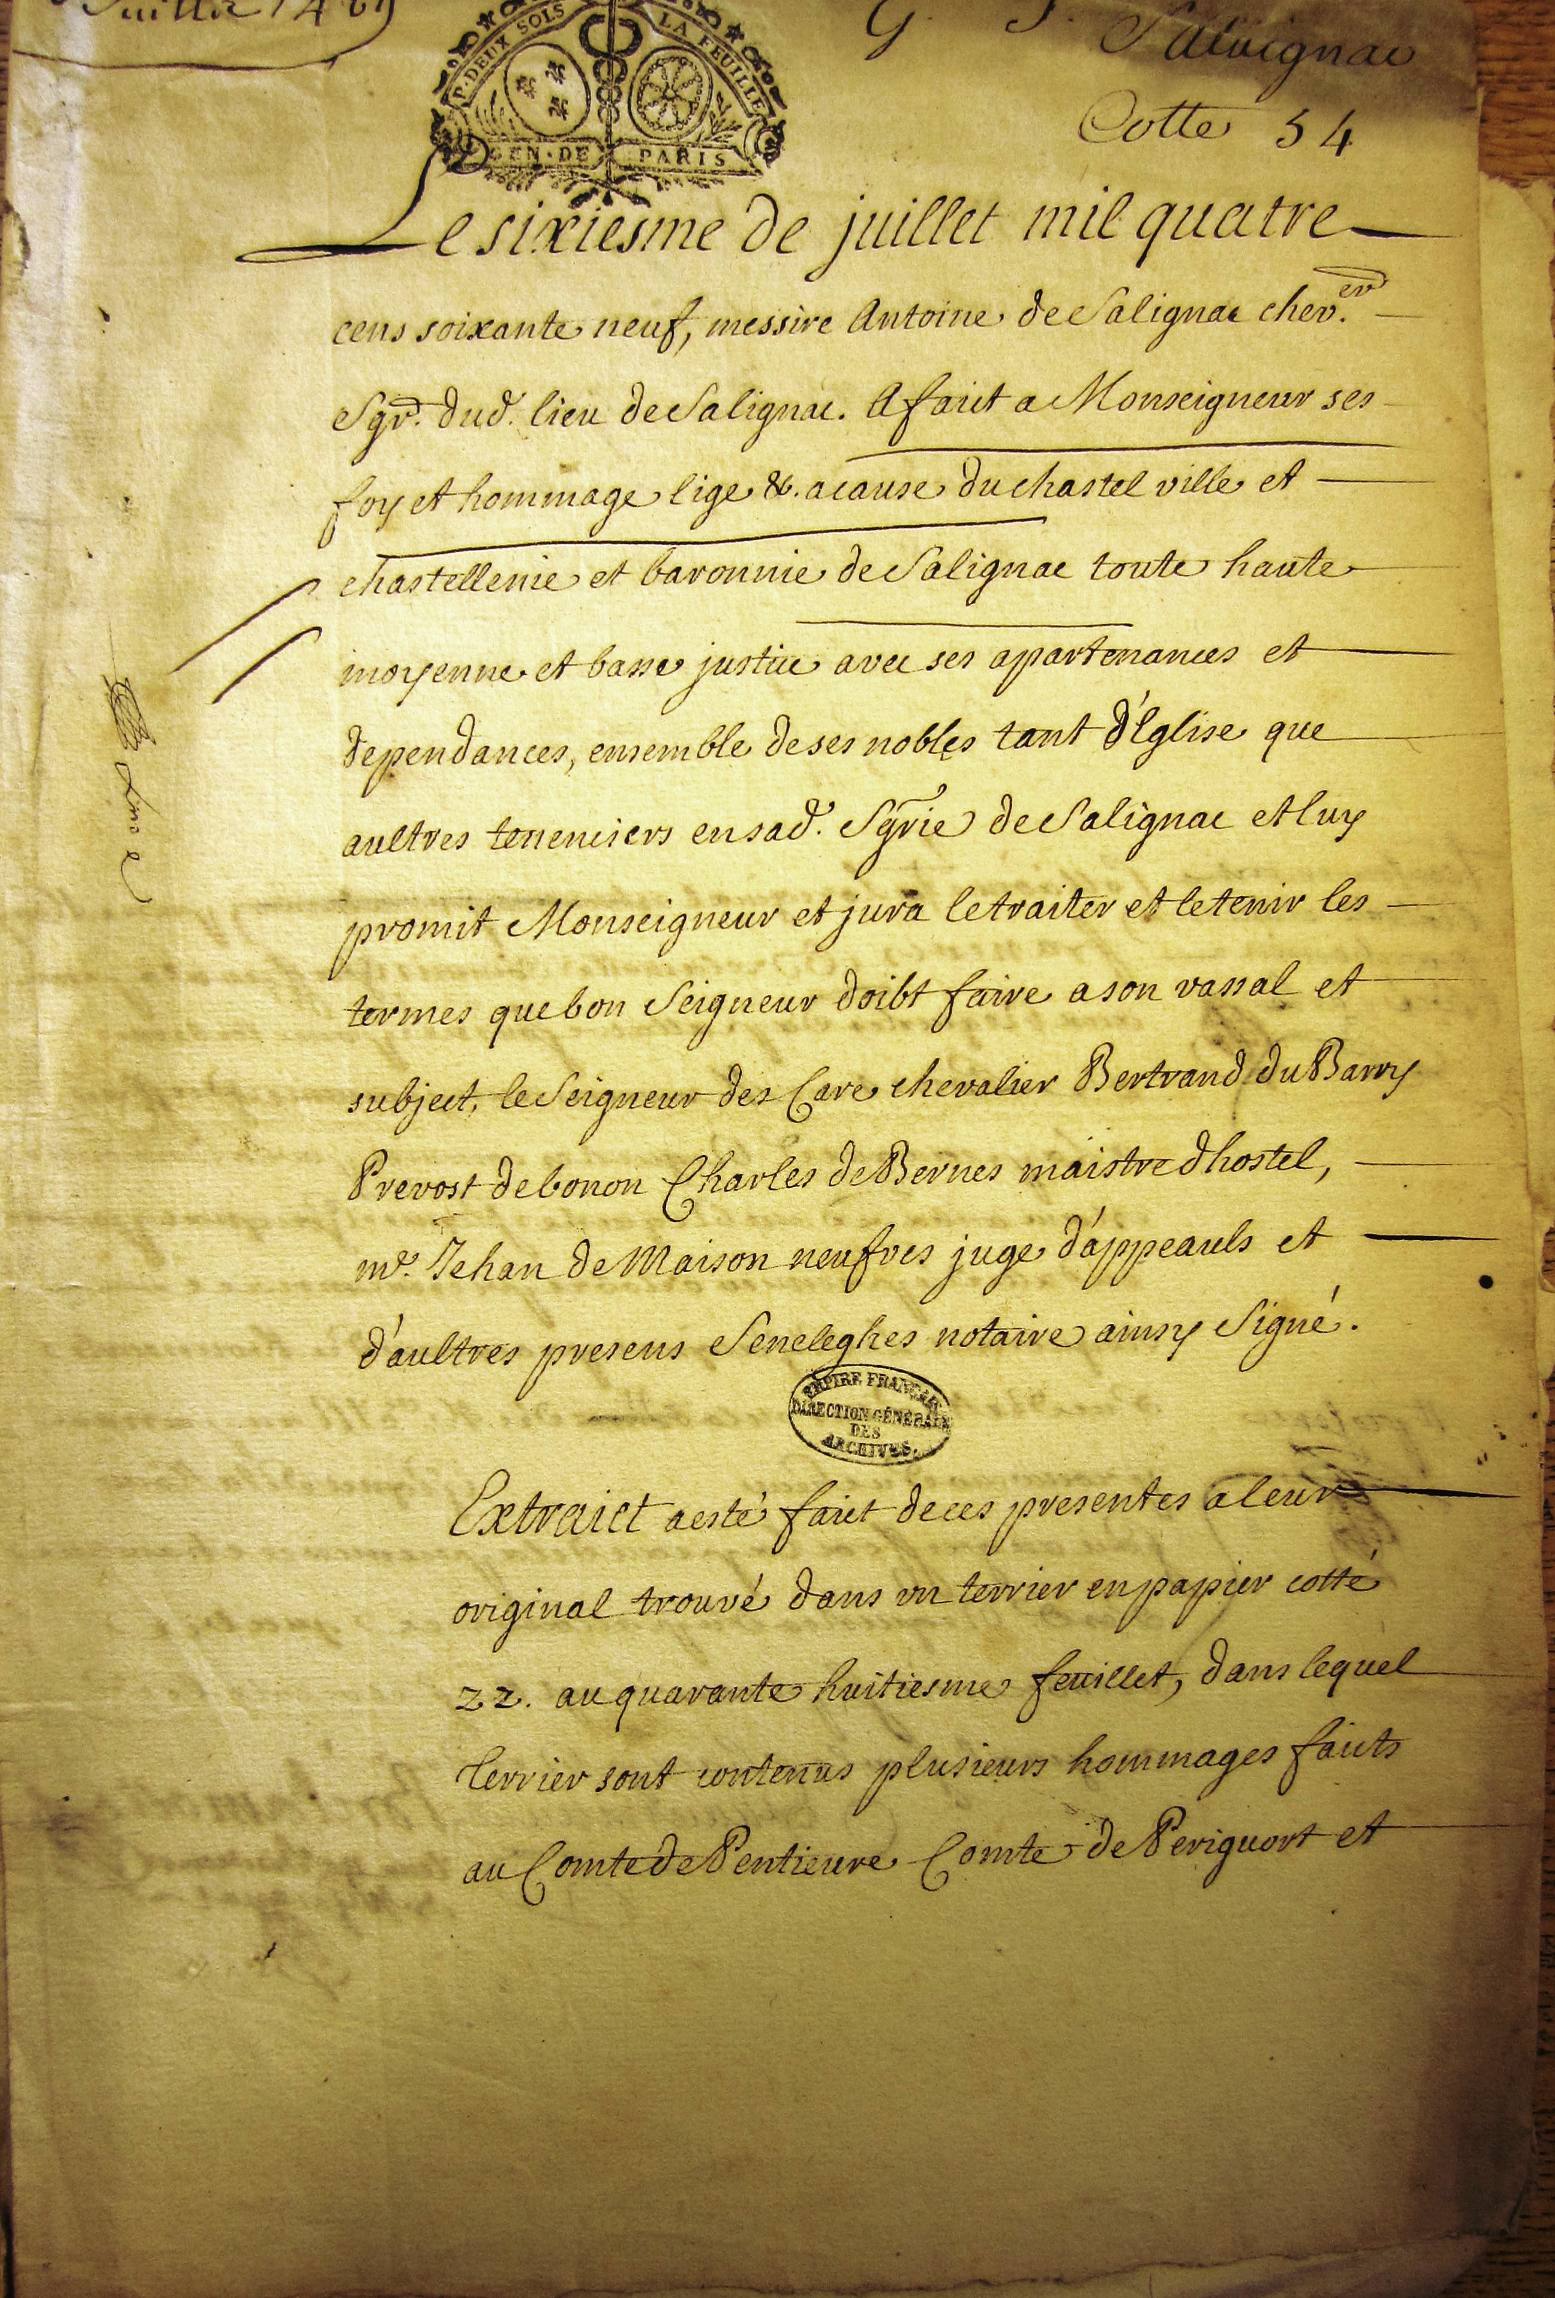 Juillet 1469
G. P. Salvignac
Cotte 54
P. DEUX SOLS LA FEUILLE
GEN · DE PARIS
Le sixiesme de juillet mil quatre
cens soixante neuf, messire Antoine de Salignac chev.er
Sgr. dud. lieu de Salignac. A faict a Monseigneur ses
foy et hommage lige &. a cause du chastel ville et
chastellenie et baronnie de Salignac toute haute
moyenne et basse justice avec ses apartenances et
dependances, ensemble de ses nobles tant d'Eglise que
aultres tenenciers en sad. Sgrie de Salignac et luy
promit Monseigneur et jura le traiter et le tenir les
termes que bon Seigneur doibt faire a son vassal et
subject, le Seigneur des Care chevalier Bertrand du Barry
Prevost de bonon Charles de Bernes maistre dhostel,
mr. Jehan de Maison neufves juge d'appeauls et
d'aultres presens Seneleghes notaire ainsy Signé.
EMPIRE FRANÇAIS
DIRECTION GÉNÉRALE
DES
ARCHIVES.
Extraict a esté faict de ces presentes a leur
original trouvé dans un terrier en papier cotté
22. au quarante huitiesme feuillet, dans lequel
terrier sont contenus plusieurs hommages faicts
au Comte de Pentieure Comte de Periguort et